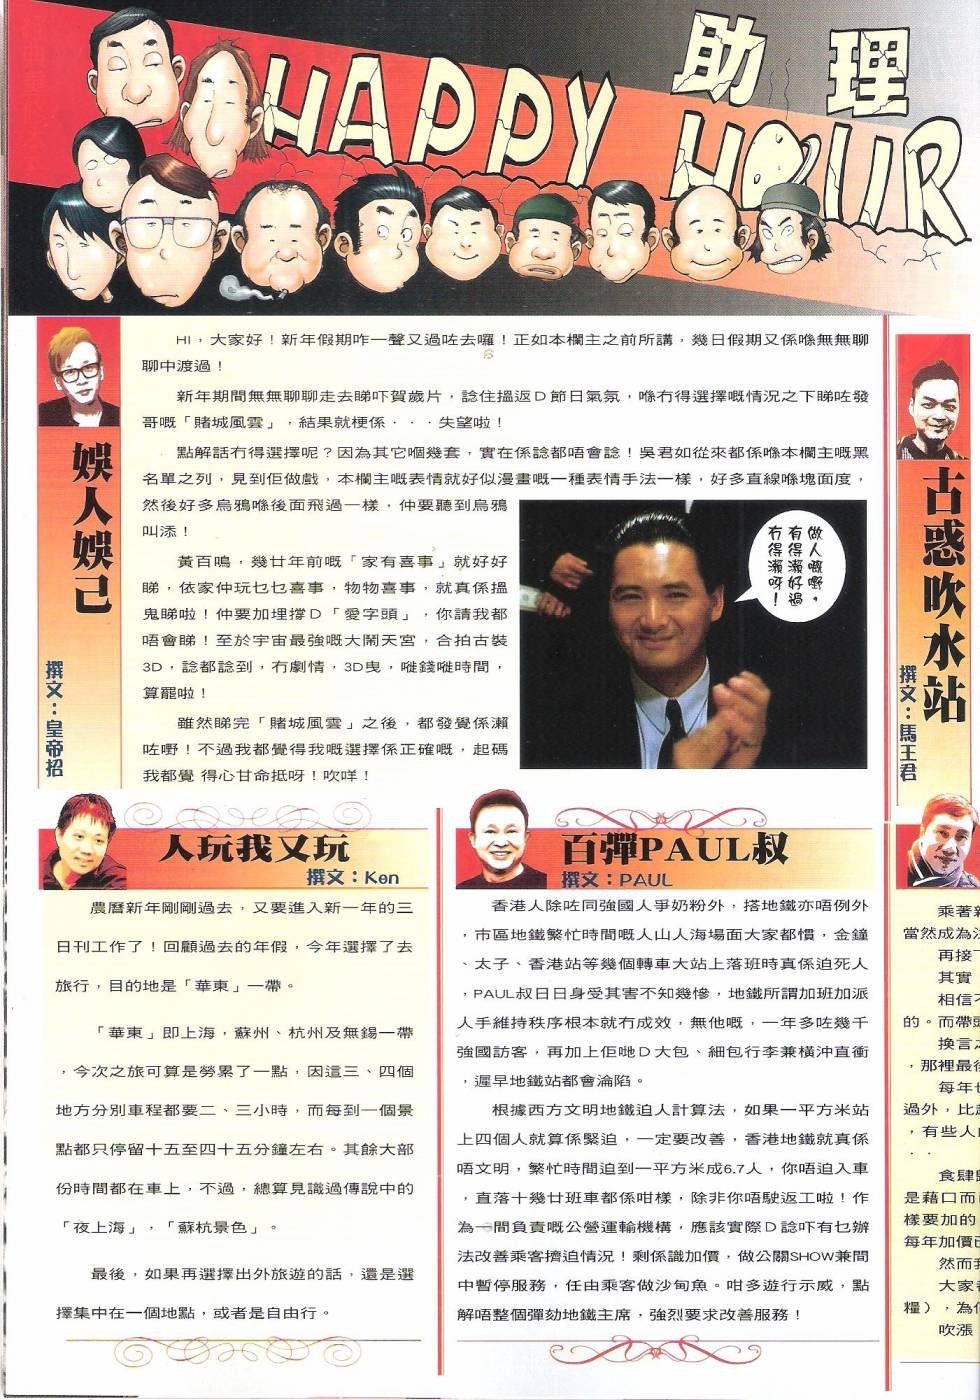 助理
HAPPY HOUR
娛人娛己
撰文：皇帝招
HI，大家好！新年假期咋一聲又過咗去囉！正如本欄主之前所講，幾日假期又係喺無無聊
聊中渡過！
新年期間無無聊聊走去睇吓賀歲片，諗住搵返D節日氣氛，喺冇得選擇嘅情況之下睇咗發
哥嘅「賭城風雲」，結果就梗係・・・失望啦！
點解話冇得選擇呢？因為其它嗰幾套，實在係諗都唔會諗！吳君如從來都係喺本欄主嘅黑
名單之列，見到佢做戲，本欄主嘅表情就好似漫畫嘅一種表情手法一樣，好多直線喺塊面度，
然後好多烏鴉喺後面飛過一樣，仲要聽到烏鴉
叫添！
黃百鳴，幾廿年前嘅「家有喜事」就好好
睇，依家仲玩乜乜喜事，物物喜事，就真係搵
鬼睇啦！仲要加埋撐D「愛字頭」，你請我都
唔會睇！至於宇宙最強嘅大鬧天宮，合拍古裝
3D，諗都諗到，冇劇情，3D曳，嘥錢嘥時間，
算罷啦！
雖然睇完「賭城風雲」之後，都發覺係瀨
咗嘢！不過我都覺得我嘅選擇係正確嘅，起碼
我都覺 得心甘命抵呀！吹咩！
做人嘅嘢，
有得瀨好過
冇得瀨呀！
古惑吹水站
撰文：馬王君
人玩我又玩
撰文：Ken
農曆新年剛剛過去，又要進入新一年的三
日刊工作了！回顧過去的年假，今年選擇了去
旅行，目的地是「華東」一帶。
「華東」即上海，蘇州、杭州及無錫一帶
，今次之旅可算是勞累了一點，因這三、四個
地方分別車程都要二、三小時，而每到一個景
點都只停留十五至四十五分鐘左右。其餘大部
份時間都在車上，不過，總算見識過傳說中的
「夜上海」，「蘇杭景色」。
最後，如果再選擇出外旅遊的話，還是選
擇集中在一個地點，或者是自由行。
百彈PAUL叔
撰文：PAUL
香港人除咗同強國人爭奶粉外，搭地鐵亦唔例外
，市區地鐵繁忙時間嘅人山人海場面大家都慣，金鐘
、太子、香港站等幾個轉車大站上落班時真係迫死人
，PAUL叔日日身受其害不知幾慘，地鐵所謂加班加派
人手維持秩序根本就冇成效，無他嘅，一年多咗幾千
強國訪客，再加上佢哋D大包、細包行李兼橫沖直衝
，遲早地鐵站都會淪陷。
根據西方文明地鐵迫人計算法，如果一平方米站
上四個人就算係緊迫，一定要改善，香港地鐵就真係
唔文明，繁忙時間迫到一平方米成6.7人，你唔迫入車
，直落十幾廿班車都係咁樣，除非你唔駛返工啦！作
為一間負責嘅公營運輸機構，應該實際D諗吓有乜辦
法改善乘客擠迫情況！剩係識加價，做公關SHOW兼間
中暫停服務，任由乘客做沙甸魚。咁多遊行示威，點
解唔整個彈劾地鐵主席，強烈要求改善服務！
乘著
當然成為
再接
其實
相信
的。而帶
換言之
，那裡最後
每年
過外，比
，有些人
・・
食肆
是藉口而
樣要加的
每年加價
然而
大家
糧），為
吹漲